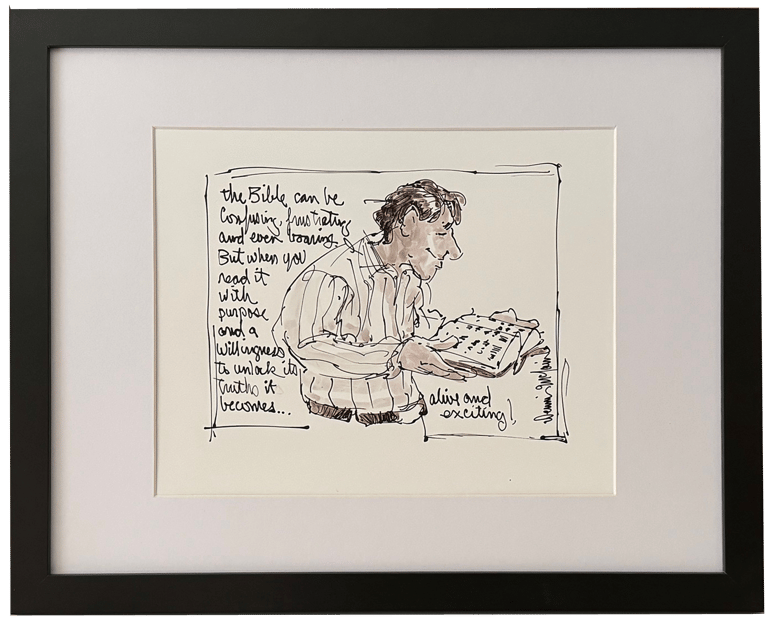 the Bible can be
Confusing, frustrating
and even boaring.
But when you
read it
with
purpose
and a
willingness
to unlock its
truths it
becomes...
alive and
exciting!